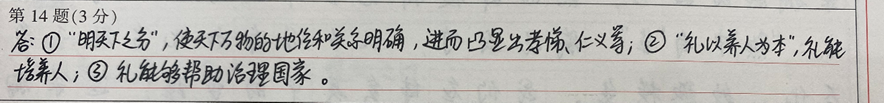 第 14 题(3 分)
答:①“明天下之分”,使天下万物的地位和关系明确,进而凸显出孝悌、仁义等;②“礼以养人为本”,礼能
培养人;③礼能够帮助治理国家。